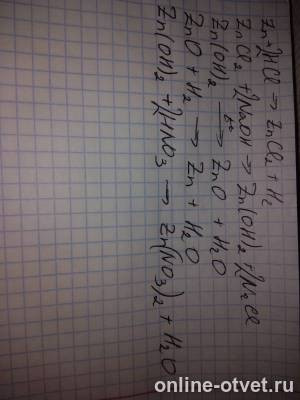 Zn+2HCl → ZnCl2 + H2
ZnCl2 + 2NaOH → Zn(OH)2 + 2NaCl
Zn(OH)2 t° → ZnO + H2O
ZnO + H2 → Zn + H2O
Zn(OH)2 + 2HNO3 → Zn(NO3)2 + H2O
online-otvet.ru